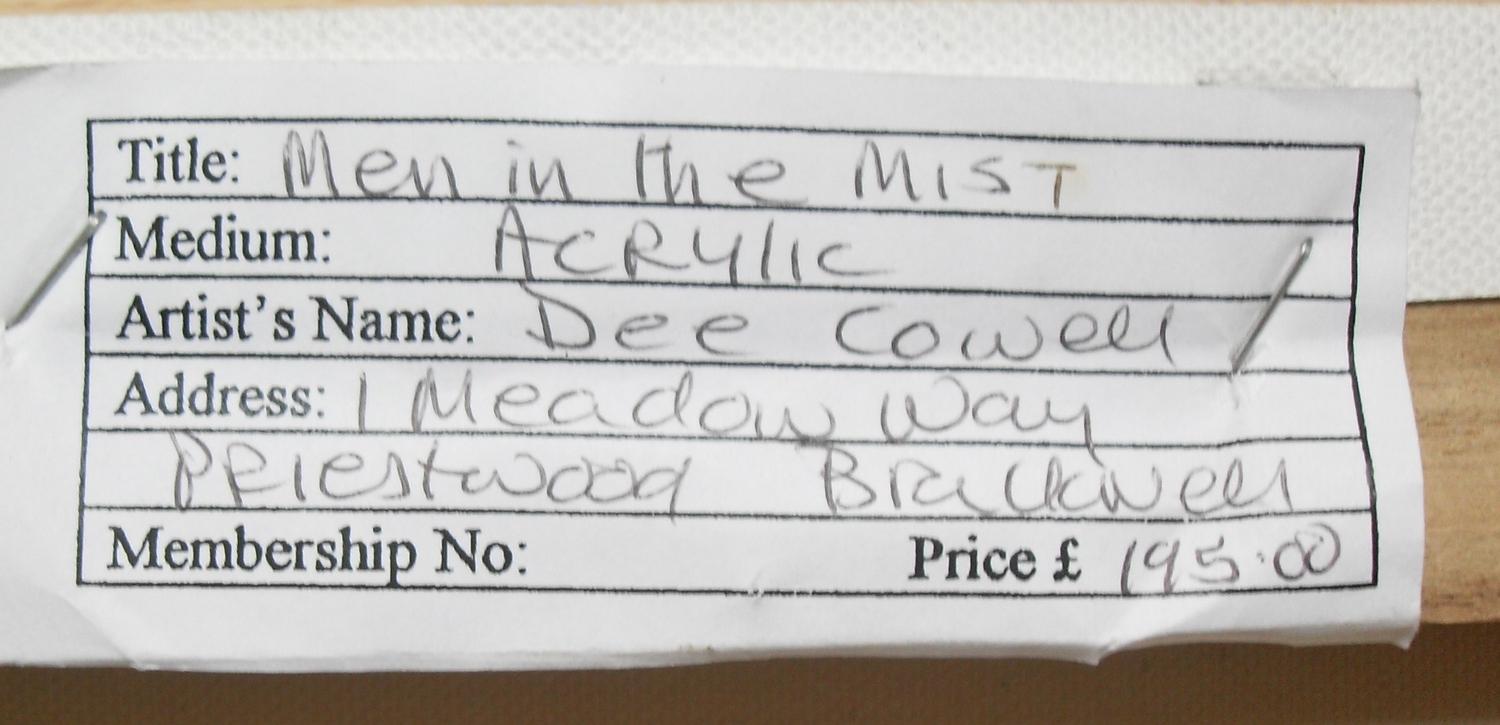 Title: Men in the MIST
Medium: ACRYLIC
Artist's Name: Dee Cowell
Address: 1 Meadow Way
PRIestwood Bracknell
Membership No: Price £ 195.00